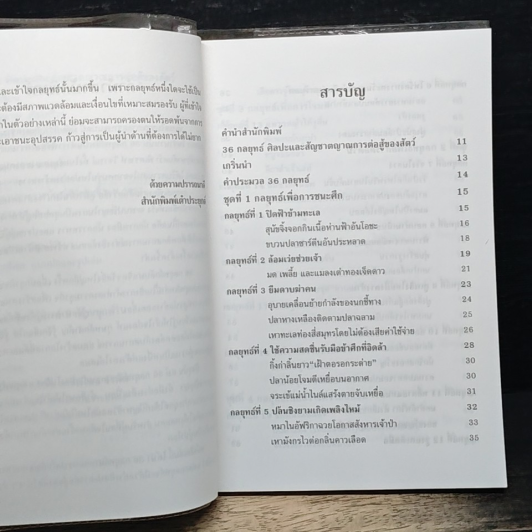 และเข้าใจกลยุทธ์นั้นมากขึ้น เพราะกลยุทธ์หนึ่งใดจะใช้เป็น
ต้องมีสภาพแวดล้อมและเงื่อนไขที่เหมาะสมรองรับ ผู้ที่เข้าใจ
ในตัวอย่างเหล่านี้ ย่อมจะสามารถครองตนให้รอดพ้นจากการ
เอาชนะอุปสรรค ก้าวสู่การเป็นผู้นำด้านที่ต้องการได้ไม่ยาก
ด้วยความปรารถนาดี
สำนักพิมพ์เต๋าประยุกต์
สารบัญ
คำนำสำนักพิมพ์
36 กลยุทธ์ ศิลปะและสัญชาตญาณการต่อสู้ของสัตว์ 11
เกริ่นนำ 13
คำประมวล 36 กลยุทธ์ 14
ชุดที่ 1 กลยุทธ์เพื่อการชนะศึก 15
กลยุทธ์ที่ 1 ปิดฟ้าข้ามทะเล 15
สุนัขจิ้งจอกกินเนื้อห่านฟ้าอันโอชะ 16
ขบวนปลาซาร์ดีนอันประหลาด 18
กลยุทธ์ที่ 2 ล้อมเว่ยช่วยเจ้า 19
มด เพลี้ย และแมลงเต่าทองเจ็ดดาว 21
กลยุทธ์ที่ 3 ยืมดาบฆ่าคน 23
อุบายเคลื่อนย้ายกำลังของนกขี้ทาง 24
ปลาหางเหลืองติดตามปลาฉลาม 25
เหาทะเลท่องสี่สมุทรโดยไม่ต้องเสียค่าใช้จ่าย 26
กลยุทธ์ที่ 4 ใช้ความสดชื่นรับมือข้าศึกที่อิดล้า 28
กิ้งก่าลิ้นยาว"เฝ้าตอรอกระต่าย" 30
ปลาน้อยโจมตีเหยื่อบนอากาศ 30
จระเข้แม่น้ำไนล์แสร้งตายจับเหยื่อ 31
กลยุทธ์ที่ 5 ปล้นชิงยามเกิดเพลิงไหม้ 32
หมาในอัฟริกาฉวยโอกาสสังหารเจ้าป่า 33
เหามังกรไวต่อกลิ่นคาวเลือด 35